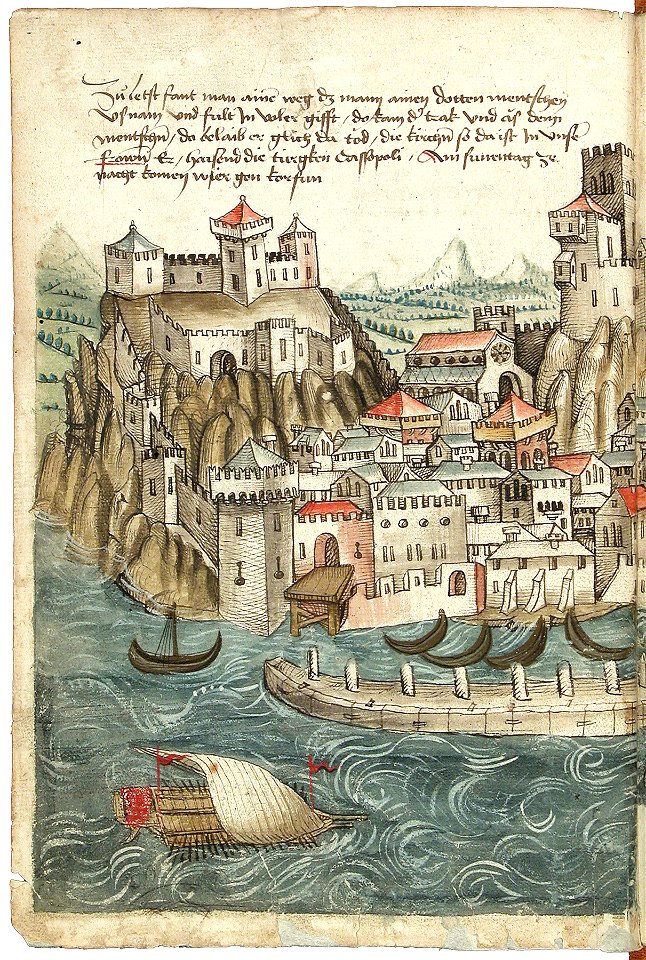 Zu letst fant man ainē weg dz mann ainen dotten mentschen
vsnam und fult in voler gifft / do kam dʼ trak und aß denn
mentschn / do belaib er glich da tod / die kirchn̄ so da ist in unse
frown̄ Er / haisend die turgken Cassopoli / Am sunentag ze
nacht komen wier gon korfun